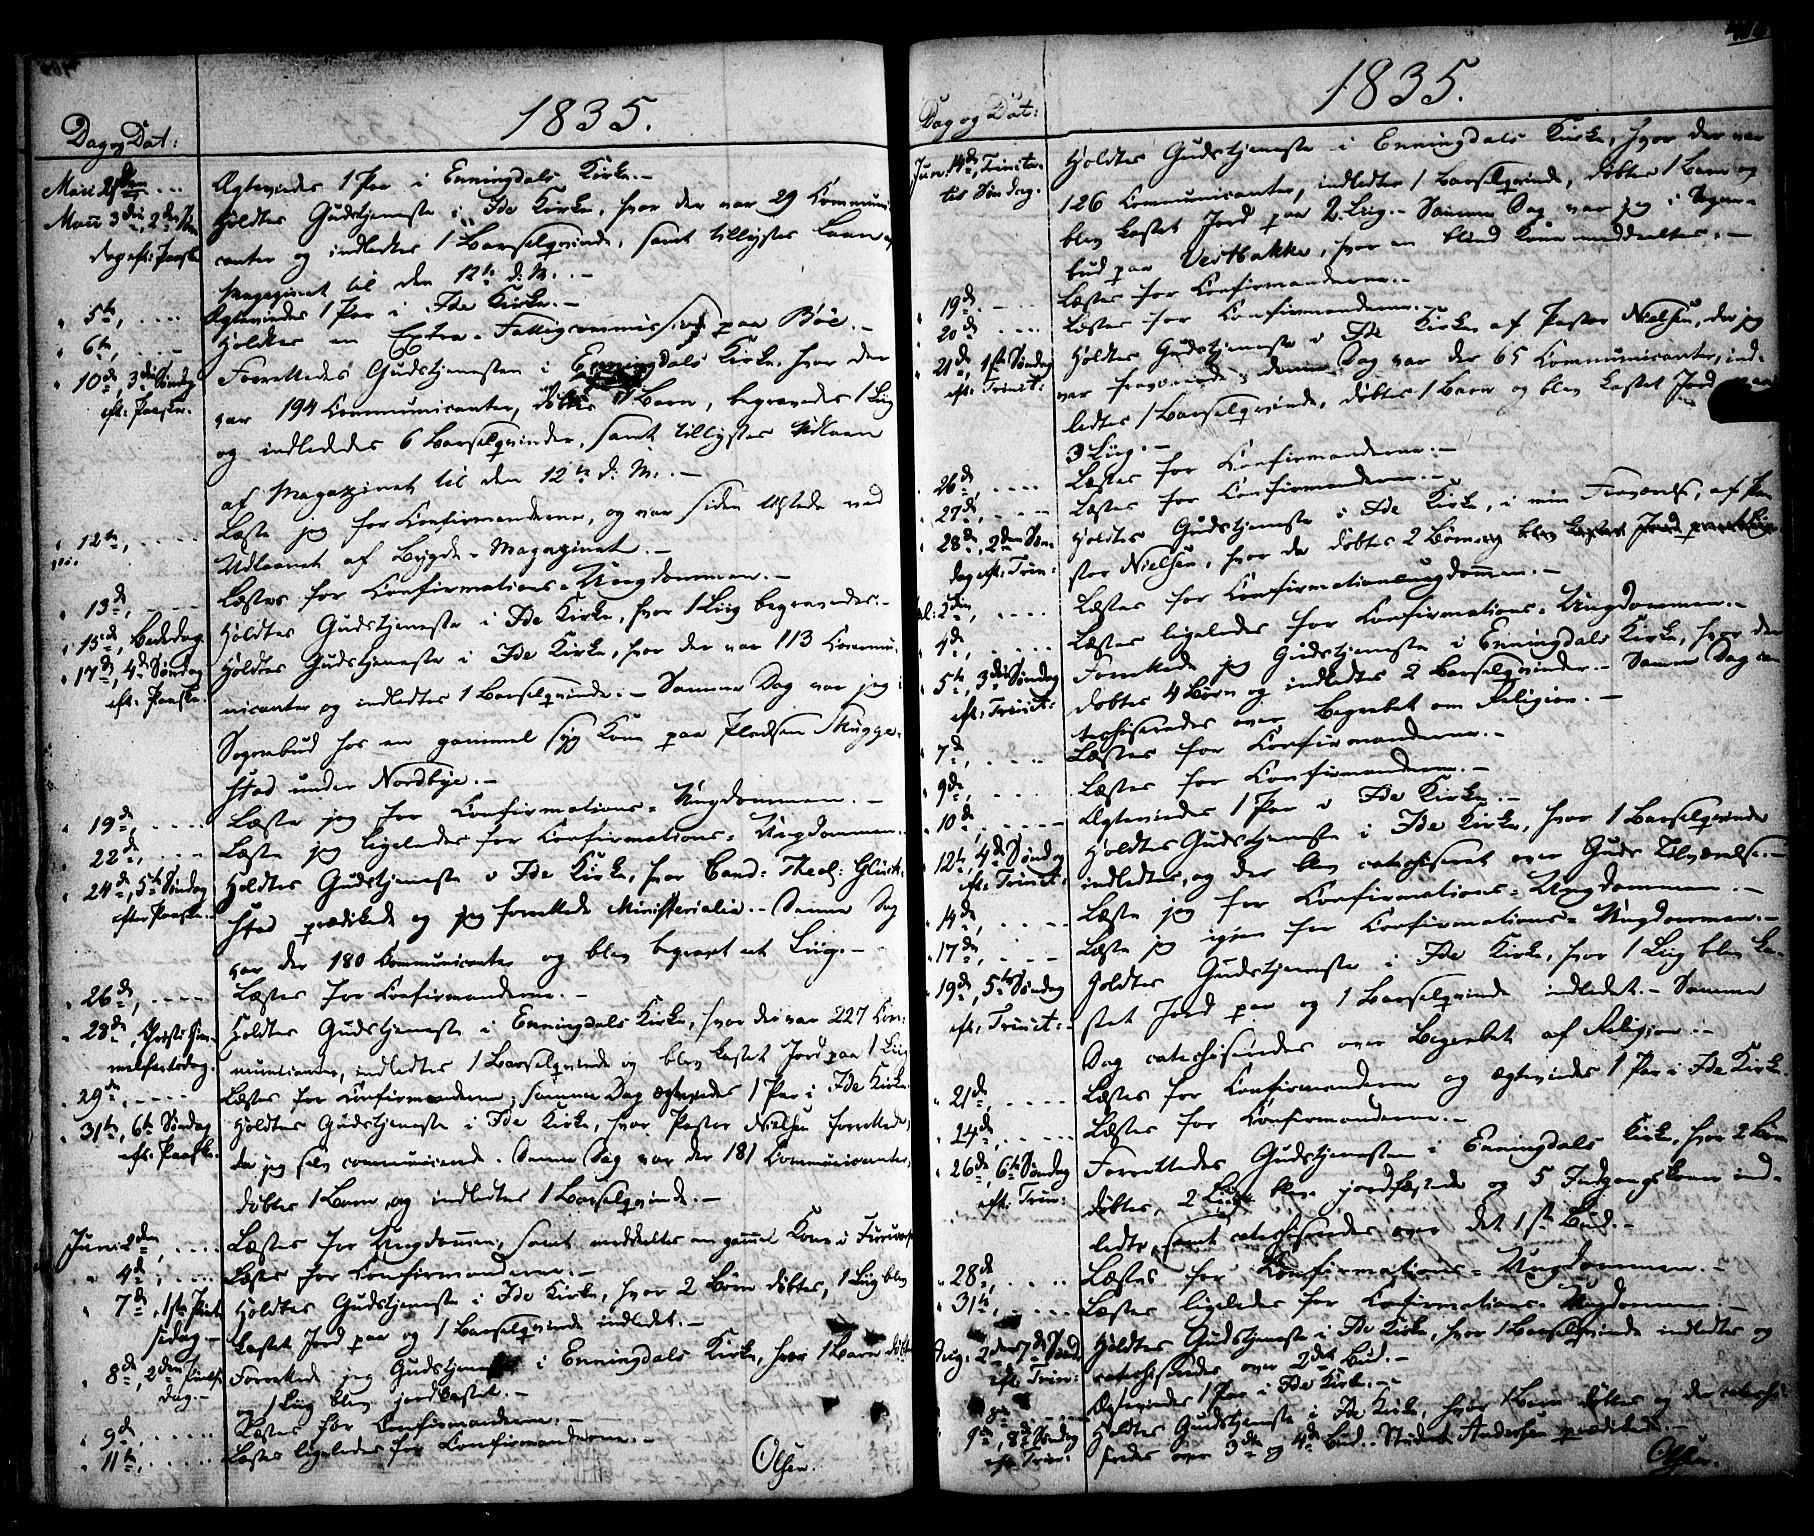 1835.
Dag og Dat:
Maii 2den ....
Ægteviedes 1 Par i Enningdals Kirke.-
Maii 3die, 2den Søn
Holdtes Gudstjeneste i Ide Kirke, hvor der var 29 Communi-
dag eft: Paaske
canter og indledtes 1 Barselqvinde, samt tillystes Laan af
Magazinet til den 12te d. M. -
" 5te, ....
Ægteviedes 1 Par i Ide Kirke.-
" 6te, ....
Holdtes en Extra-Fattigcommission paa Böe.-
" 10de, 3die Søndag
Forrettedes Gudstjenesten i Enningdals Kirke, hvor der
eft: Paaske.
var 194 Communicanter, døbtes 1 Barn, begravedes 1 Liig
og indlededes 6 Barselqvinder, samt tillystes Udlaan
af Magazinet til den 12te d. M. -
" 12te, ....
Læste jeg for Confirmanderne, og var siden tilstede ved
Udlaanet af Bygde-Magazinet.-
" 13de, ....
Læstes for Confirmations-Ungdommen.-
" 15de, Bededag.
Holdtes Gudstjeneste i Ide Kirke, hvor 1 Liig begravedes.-
" 17de, 4de Søndag
Holdtes Gudstjeneste i Ide Kirke, hvor der var 113 Commu-
eft: Paaske.
nicanter og indledtes 1 Barselqvinde.- Samme Dag var jeg i
Sognebud hos en gammel syg Kone paa Pladsen Mygge-
stad under Nordbye.-
" 19de, ....
Læste jeg for Confirmations-Ungdommen.-
" 22de, ....
Læste jeg ligeledes for Confirmations-Ungdommen.
" 24de, 5te Søndag
Holdtes Gudstjeneste i Ide Kirke, hvor Cand: Theol:
efter Paaske.-
stad prædikede og jeg forrettede Ministerialia.- Samme Dag
var der 180 Communicanter og blev begravet et Liig.-
" 26de, ....
Læstes for Confirmanderne.-
" 28de, Christi Him-
Holdtes Gudstjeneste i Enningdals Kirke, hvor der var 227 Com-
melfartsdag.
municanter, indledtes 1 Barselqvinde og blev kastet Jord paa 1 Liig
" 29de, ....
Læstes for Confirmanderne; samme Dag ægteviedes 1 Par i Ide Kirke.
" 31te, 6te Søndag
Holdtes Gudstjeneste i Ide Kirke, hvor Pastor Nielsen forrettede,
eft: Paaske.
da jeg selv communicerede. Samme Dag var der 181 Communicanter,
døbtes 1 Barn og indledtes 1 Barselqvinde.-
Juni 2den, ....
Læstes for Ungdommen, samt meddeltes en gammel Kone i
" 4de, ....
Læstes for Confirmanderne.-
" 7de, 1ste Pint-
Holdtes Gudstjeneste i Ide Kirke, hvor 2 Børn døbtes, 1 Liig blev
sedag.-
kastet Jord paa og 1 Barselqvinde indledet.-
" 8de, 2den Pintse
Forrettede jeg Gudstjeneste i Enningdals Kirke, hvor 1 Barn døbtes
dag.-
og 1 Liig blev jordkastet.-
" 9de, ....
Læstes for Confirmanderne.-
" 11te, ....
Læstes ligeledes for Confirmanderne.-
Olsen.
1835.
Dag og Dat:
Jun: 14de, Trinita-
Holdtes Gudstjeneste i Enningdals Kirke, hvor der var
tis Søndag.
126 Communicanter, indledtes 1 Barselqvinde, døbtes 1 Barn og
blev kastet Jord paa 2 Liig.- Samme Dag var jeg i Sogne-
bud paa Vestbakke, hvor en blind Kone meddeeltes.-
" 19de, ....
Læstes for Confirmanderne.-
" 20de ....
Læstes for Confirmanderne.-
" 21de, 1ste Søndag
Holdtes Gudstjeneste i Ide Kirke af Pastor Nielsen, da jeg
eft: Trinit:
var fraværende; denne Dag var der 65 Communicanter, ind-
ledtes 1 Barselqvinde, døbtes 1 Barn og blev kastet Jord paa
3 Liig.-
" 26de, ....
Læstes for Confirmanderne.-
" 27de, ....
Læstes for Confirmanderne.-
" 28de, 2den Søn-
Holdtes Gudstjeneste i Ide Kirke, i min Fraværelse, af Pa-
dag eft: Trin:
stor Nielsen, hvor der døbtes 2 Børn og blev kastet Jord paa
Jul: 2den, ....
Læstes for Confirmationsungdommen.-
" 4de, ....
Læstes ligeledes for Confirmations-Ungdommen.-
" 5te, 3die Søndag
Forrettede jeg Gudstjeneste i Enningdals Kirke, hvor der
eft: Trinit:
døbtes 4 Børn og indledtes 2 Barselqvinder.- Samme Dag ca-
techiseredes over Begrebet om Religion.-
" 7de, ....
Læstes for Confirmanderne.-
" 9de, ....
Læstes for Confirmanderne.-
" 10de, ....
Ægteviedes 1 Par i Ide Kirke.-
" 12te, 4de Søndag
Holdtes Gudstjeneste i Ide Kirke, hvor 1 Barselqvinde
eft: Trinit:
indledtes, og der blev catechiseret over Guds Tilværelse.-
" 14de, ....
Læste jeg for Confirmations-Ungdommen.-
" 17de, ....
Læste jeg igjen for Confirmations-Ungdommen.-
" 19de, 5te Søndag
Holdtes Gudstjeneste i Ide Kirke, hvor 1 Liig blev ka-
eft: Trinit:
stet Jord paa og 1 Barselqvinde indledet.- Samme
Dag catechiseredes over Begrebet af Religion.-
" 21de, ....
Læstes for Confirmanderne og ægteviedes 1 Par i Ide Kirke.
" 24de, ....
Læstes for Confirmanderne.-
" 26de, 6te Søndag
Forrettedes Gudstjenesten i Enningdals Kirke, hvor 2 Børn
eft: Trin:
døbtes, 2 Liig blev jordfæstede og 5 Indgangskoner ind-
ledte, samt catechiseredes over det 1ste Bud.-
" 28de, ....
Læstes for Confirmations-Ungdommen.-
" 31te, ....
Læstes ligeledes for Confirmations-Ungdommen.-
Aug: 2den, 7de Sønd:
Holdtes Gudstjeneste i Ide Kirke, hvor 1 Barselqvinde indledtes og
eft: Trin:
catechiseredes over 2det Bud.-
" 8de ....
Ægteviedes 1 Par i Ide Kirke.-
" 9de, 8de Søndag
Holdtes Gudstjeneste i Ide Kirke, hvor 1 Barn døbtes og der catechi-
eft: Trin:
seredes over 3die og 4de Bud. Student Andersen prædikede.-
Olsen.